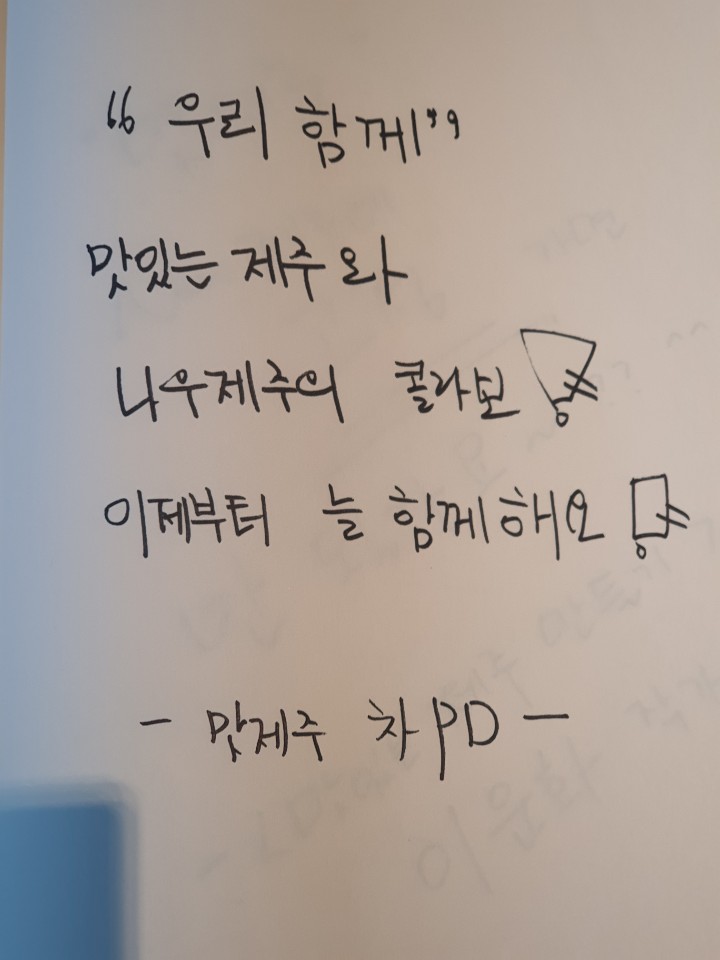 “우리 함께”
맛있는 제주와
나우제주의 콜라보!!
이제부터 늘 함께해요!!
- 맛제주 차PD -
이윤화